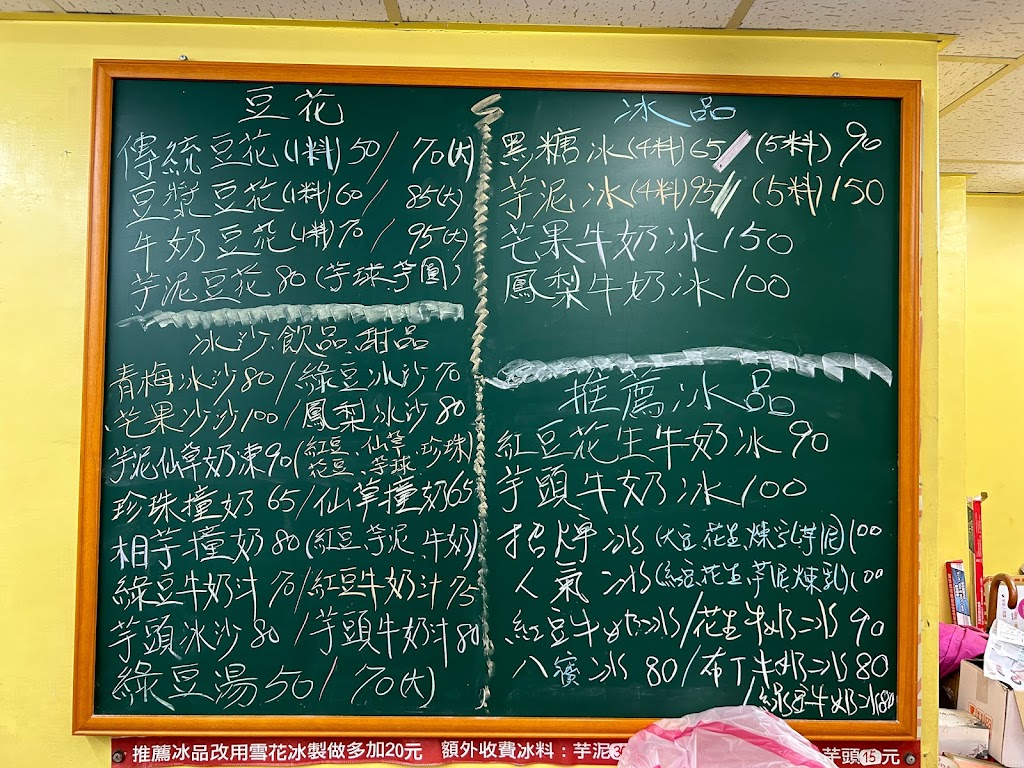 豆花
傳統豆花(1料)50/ 70(大)
豆漿豆花(1料)60/ 85(大)
牛奶豆花(1料)70/ 95(大)
芋泥豆花80(芋球、芋圓)
冰沙、飲品、甜品
青梅冰沙80/綠豆冰沙70
芒果沙沙100/鳳梨冰沙80
芋泥仙草奶凍90(紅豆、仙草、珍珠
花豆、芋球)
珍珠撞奶65/仙草撞奶65
相芋撞奶80(紅豆、芋泥、牛奶)
綠豆牛奶汁70/紅豆牛奶汁75
芋頭冰沙80/芋頭牛奶汁80
綠豆湯50/70(大)
冰品
黑糖冰(4料)65/(5料)90
芋泥冰(4料)95/(5料)150
芒果牛奶冰150
鳳梨牛奶冰100
推薦冰品
紅豆花生牛奶冰90
芋頭牛奶冰100
招牌冰(大豆、花生、煉乳、芋泥)100
人氣冰(紅豆、花生、芋泥、煉乳)100
紅豆牛奶冰/花生牛奶冰90
八寶冰80/布丁牛奶冰80
/綠豆牛奶冰80
推薦冰品改用雪花冰製做多加20元 額外收費冰料：芋泥
芋頭15元